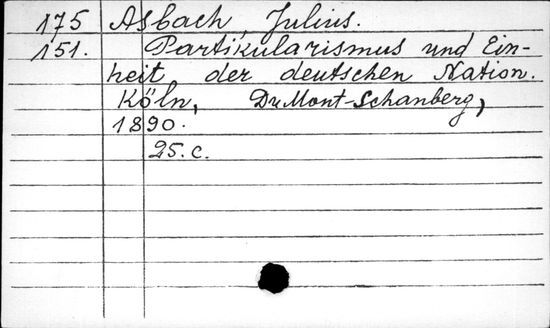 175 Asbach, Julius.
151. Partikularismus und Ein-
heit der deutschen Nation.
Köln, DuMont-Schanberg,
1890.
25. c.